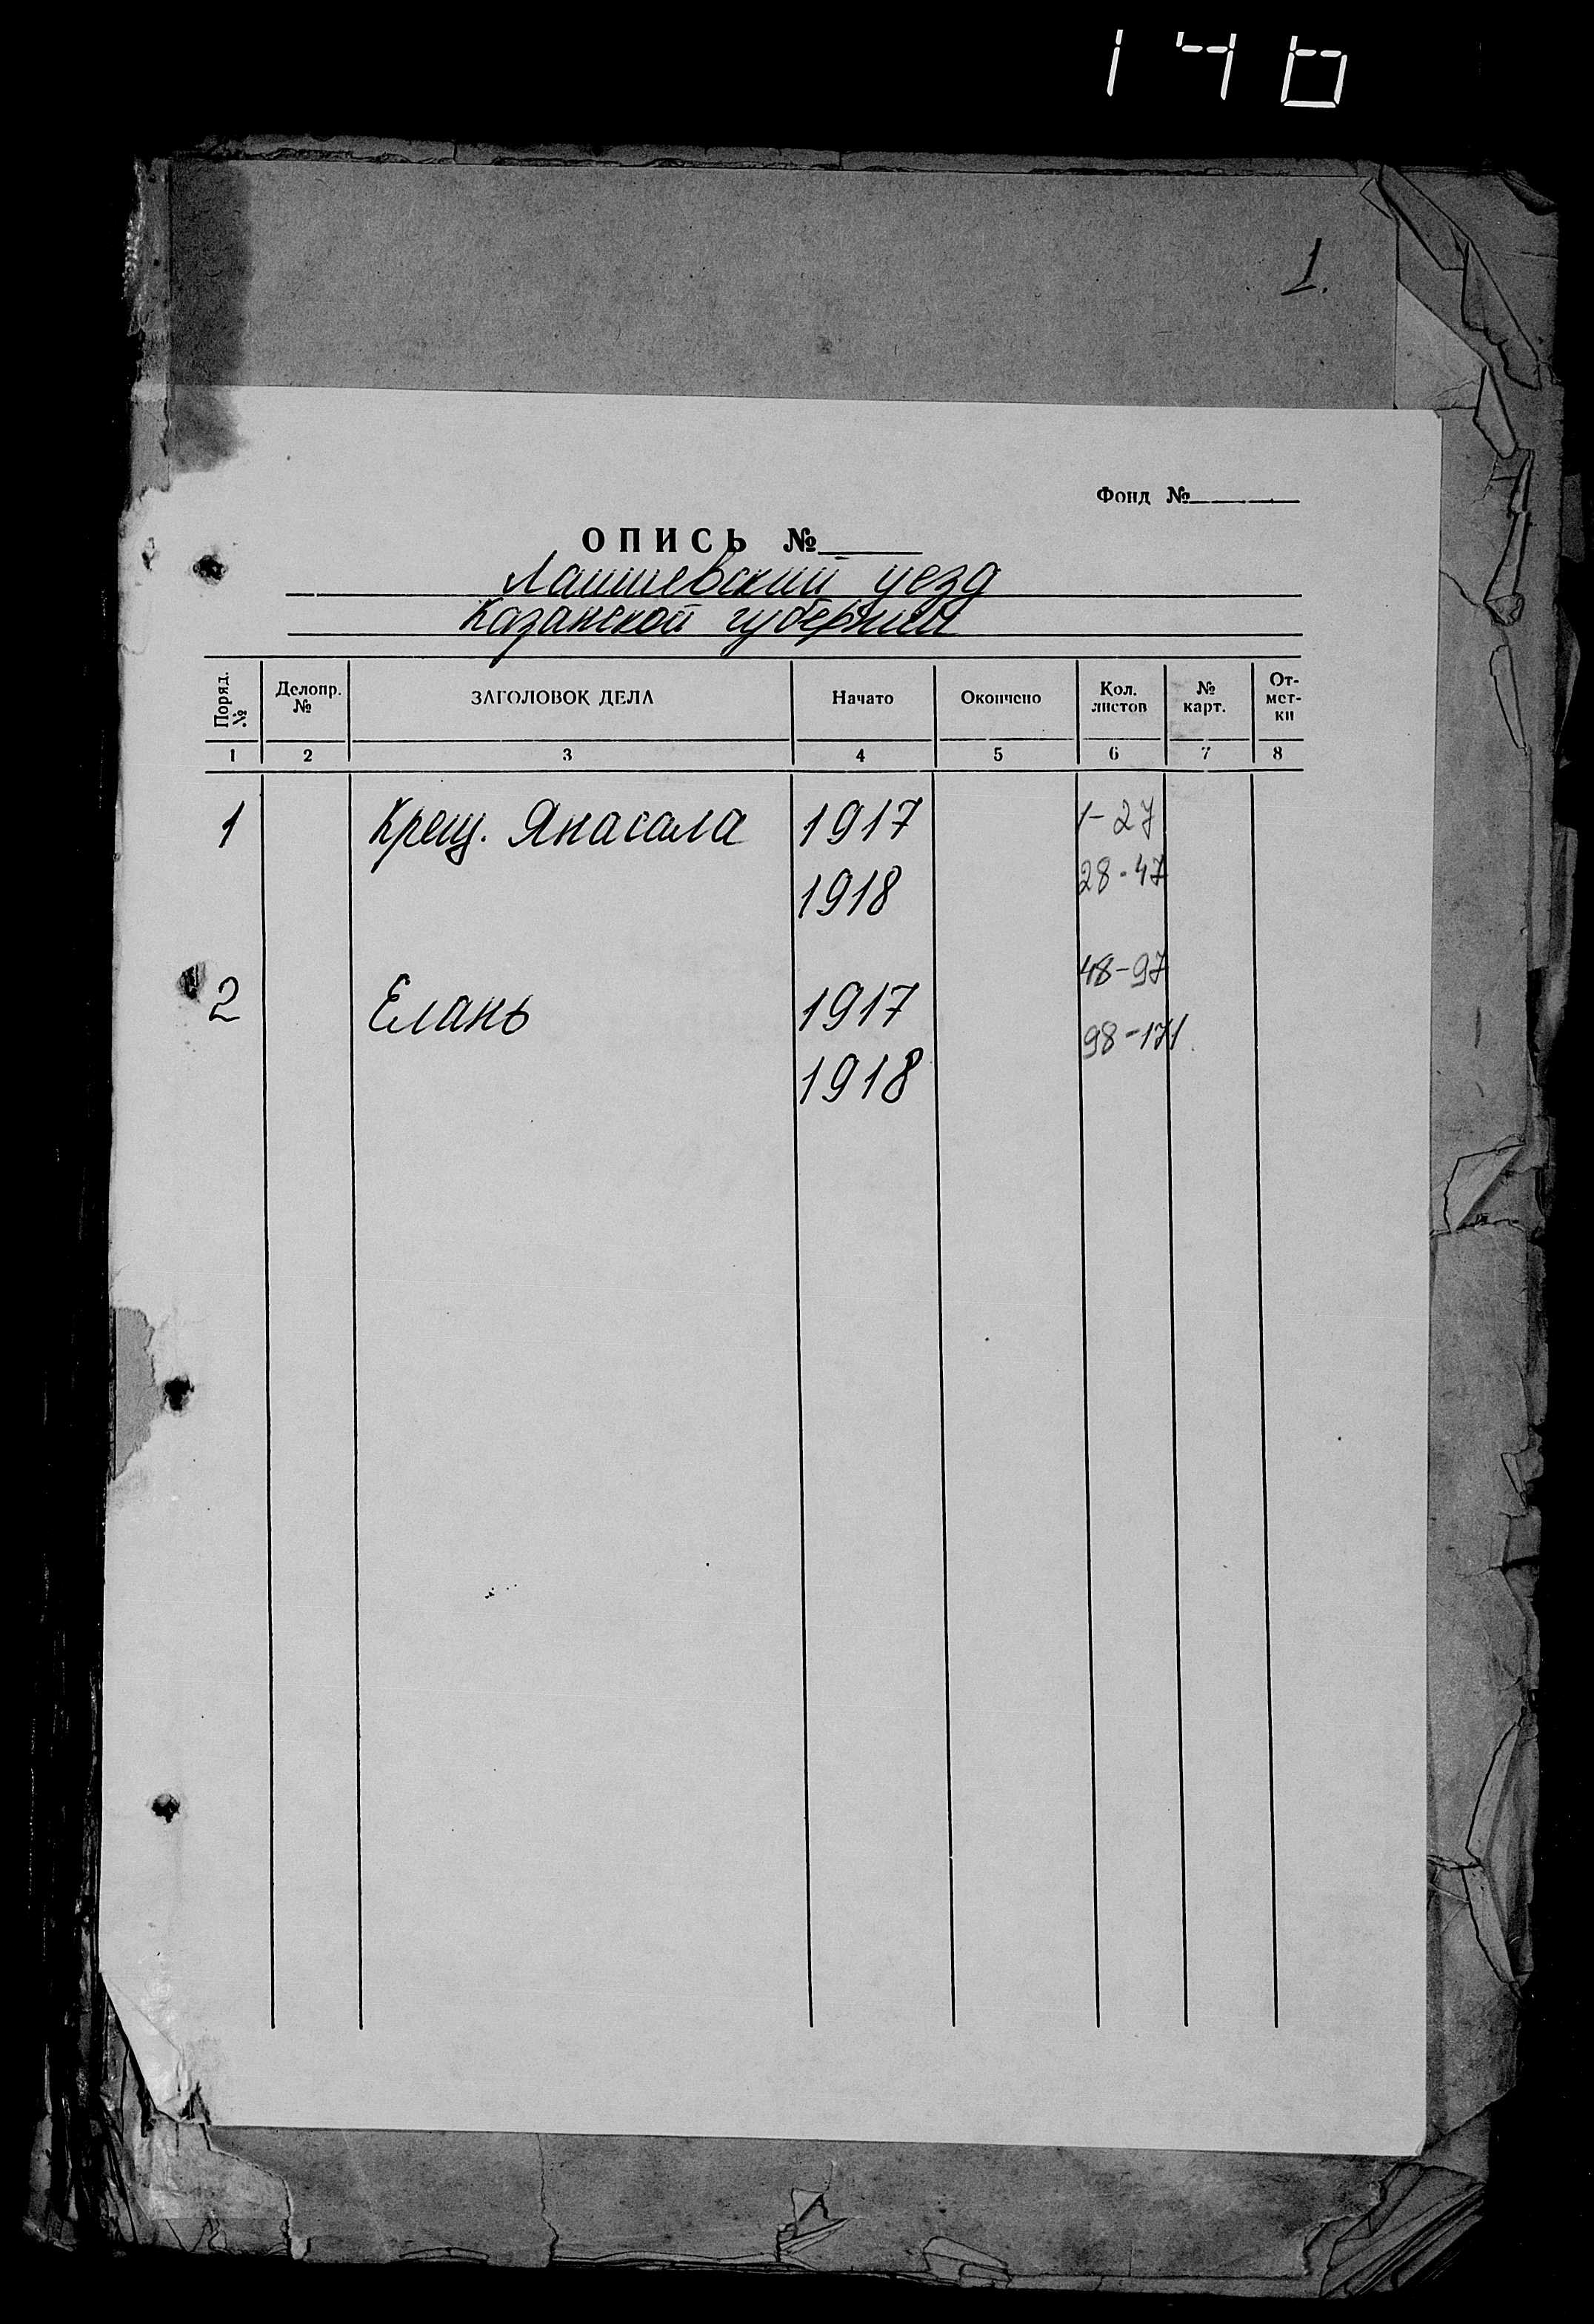 146
1.
Фонд №
ОПИСЬ №
Лаишевский уезд
Казанской губернии
Поряд. № Делопр. № ЗАГОЛОВОК ДЕЛА Начато Окончено Кол. листов № карт. От-мет-ки
1 2 3 4 5 6 7 8
1 Крещ. Янасала 1917 1-27
1918 28-47
2 Елань 1917 48-97
1918 98-171.